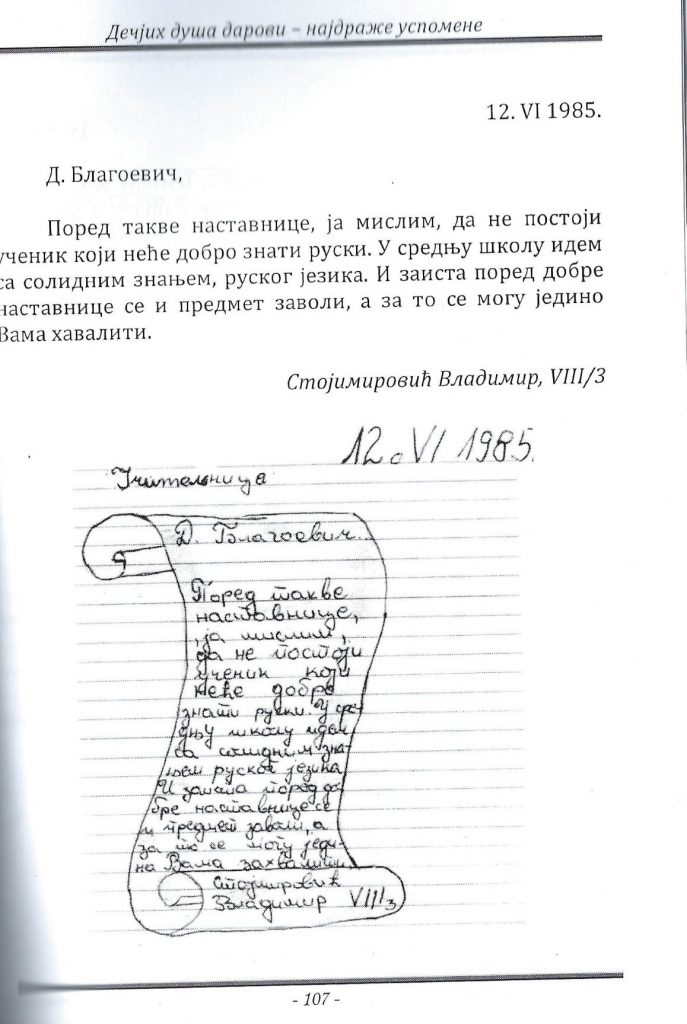 Дечјих душа дарови – најдраже успомене
12. VI 1985.
Д. Благоевич,
Поред такве наставнице, ја мислим, да не постоји
ученик који неће добро знати руски. У средњу школу идем
са солидним знањем, руског језика. И заиста поред добре
наставнице се и предмет заволи, а за то се могу једино
Вама хавалити.
Стојимировић Владимир, VIII/3
12. VI 1985.
Учительница
Д. Благоевич..
Поред такве
наставнице,
ја мислим,
да не постоји
ученик који
неће добро
знати руски. У сре-
дњу школу идем
са солидним зна-
њем руског језика
И заиста поред до-
бре наставнице се
и предмет заволи, а
за то се могу једи-
на Вама захвалити
Стојмировић
Владимир VIII/3
- 107 -